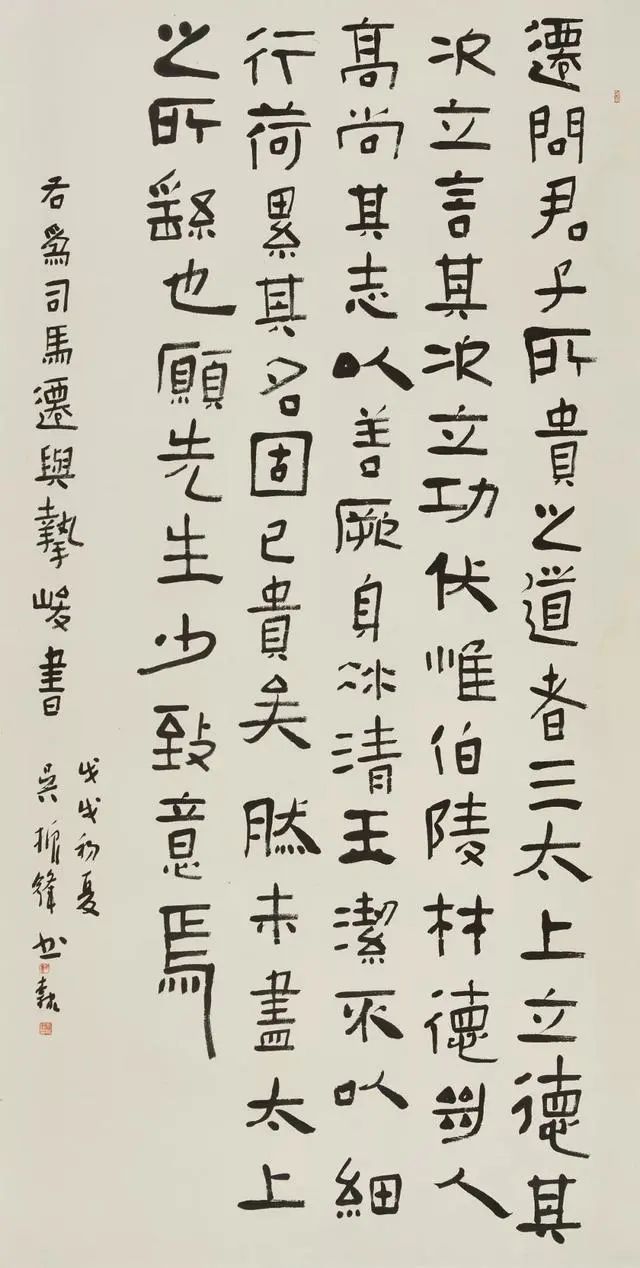 遷問君子所貴之道者三太上立德其
次立言其次立功伏惟伯陵材德人
高尚其志以善厥身冰清王潔不以細
行荷累其名固已貴矣然未盡太上
之所繇也願先生少致意焉
右爲司馬遷與摯峻書
戊戌初夏
吳振鋒書